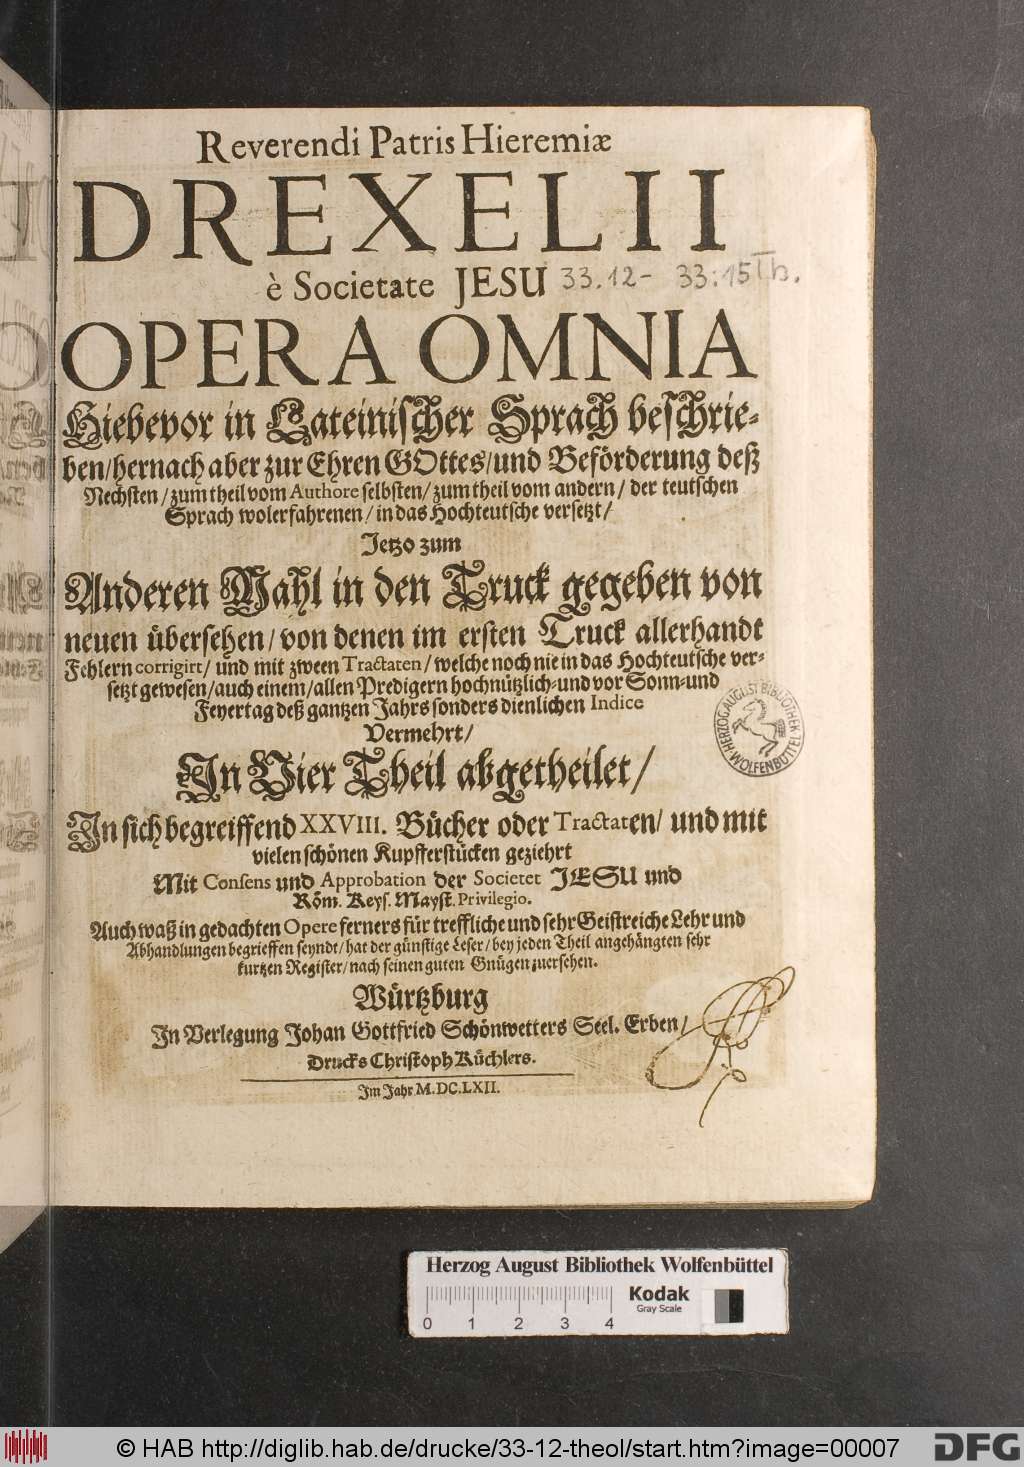 Reverendi Patris Hieremiæ
DREXELII
è Societate JESU 33.12- 33:15 Th.
OPERA OMNIA
Hiebevor in Lateinischer Sprach beschrie-
ben/hernach aber zur Ehren GOttes/und Beförderung deß
Nechsten/zum theil vom Authore selbsten/zum theil vom andern/der teutschen
Sprach wolerfahrenen/in das Hochteutsche versetzt/
Jetzo zum
Anderen Mahl in den Truck gegeben von
neuen übersehen/von denen im ersten Truck allerhandt
Fehlern corrigirt/und mit zween Tractaten/welche noch nie in das Hochteutsche ver-
setzt gewesen/auch einem/allen Predigern hochnützlich-und vor Sonn-und
Feyertag deß gantzen Jahrs sonders dienlichen Indice
Vermehrt/
HERZOG AUGUST BIBLIOTHEK WOLFENBÜTTEL
In Vier Theil abgetheilet/
In sich begreiffend XXVIII. Bücher oder Tractaten/und mit
vielen schönen Kupfferstücken geziehrt
Mit Consens und Approbation der Societet JESU und
Röm. Keys. Mayst. Privilegio.
Auch waß in gedachten Opere ferners für treffliche und sehr Geistreiche Lehr und
Abhandlungen begrieffen seyndt/hat der günstige Leser/bey jeden Theil angehängten sehr
kurtzen Register/nach seinen guten Gnügen zuersehen.
Würtzburg
In Verlegung Johan Gottfried Schönwetters Seel. Erben/
Drucks Christoph Küchlers.
Im Jahr M.DC.LXII.
Herzog August Bibliothek Wolfenbüttel
Kodak
Gray Scale
0 1 2 3 4
© HAB http://diglib.hab.de/drucke/33-12-theol/start.htm?image=00007
DFG